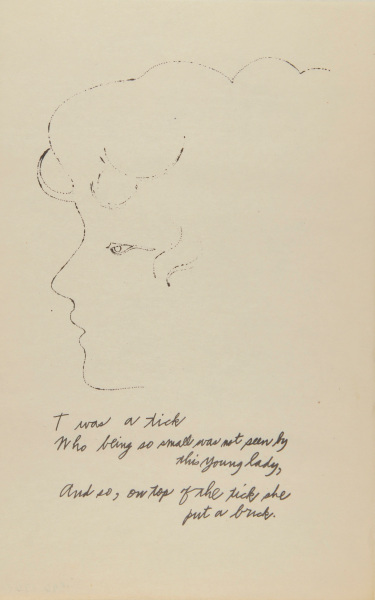 T was a tick
Who being so small was not seen by
this young lady,
And so, on top of the tick she
put a brick.